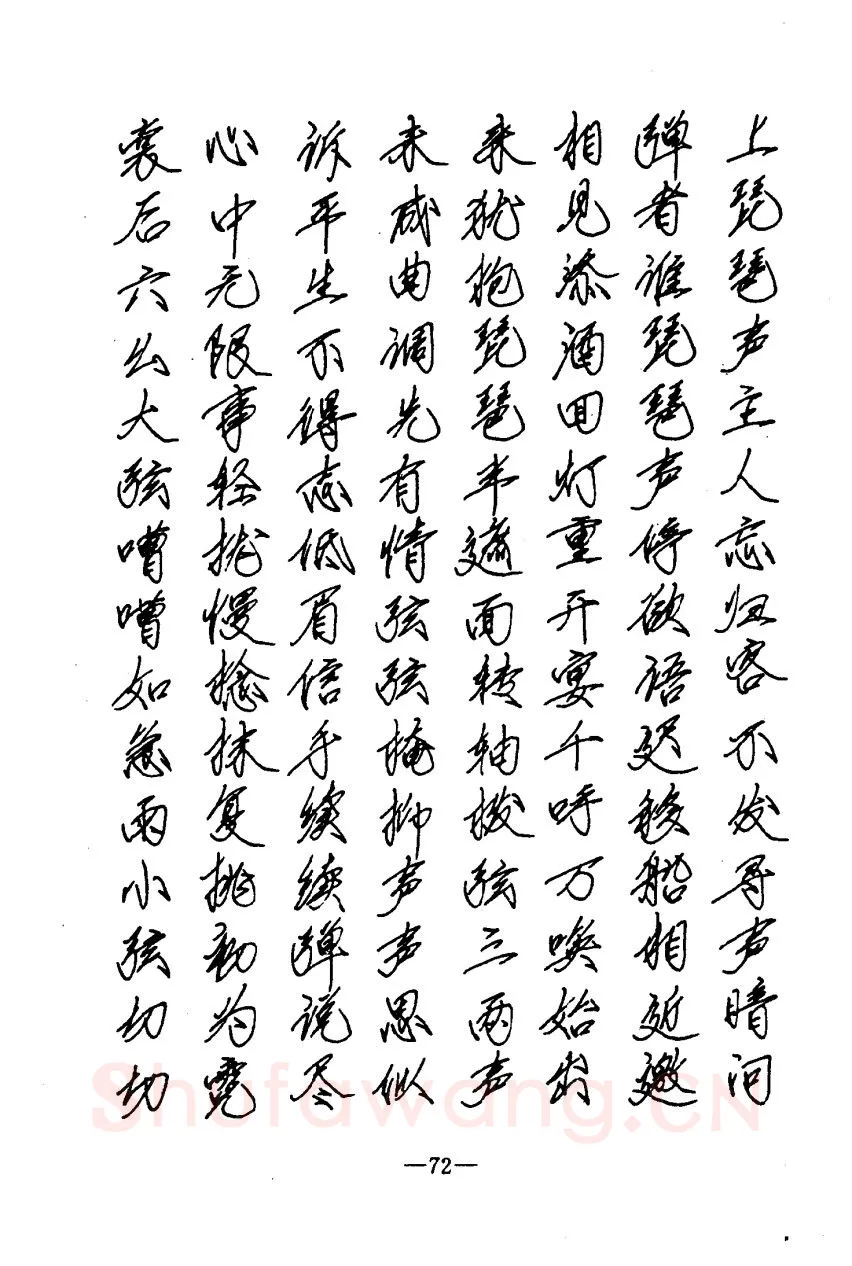 上琵琶声主人忘归客不发寻声暗问
弹者谁琵琶声停欲语迟移船相近邀
相见添酒回灯重开宴千呼万唤始出
来犹抱琵琶半遮面转轴拨弦三两声
未成曲调先有情弦弦掩抑声声思似
诉平生不得志低眉信手续续弹说尽
心中无限事轻拢慢捻抹复挑初为霓
裳后六幺大弦嘈嘈如急雨小弦切切
Shufawang.CN
—72—